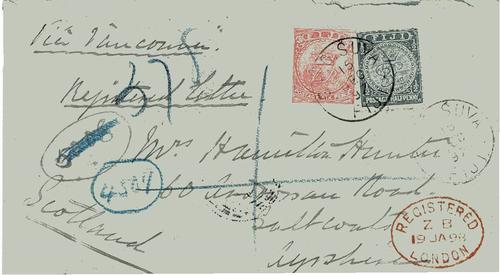 Via Vancouver.
Registered Letter
Mrs Hamilton Hunter
60 Road.
Saltcoats
Ayrshire
Scotland
4564
FIJI
HALF PENNY
SUVA
FIJI
SUVA
FIJI
REGISTERED
Z B
19 JA 98
LONDON